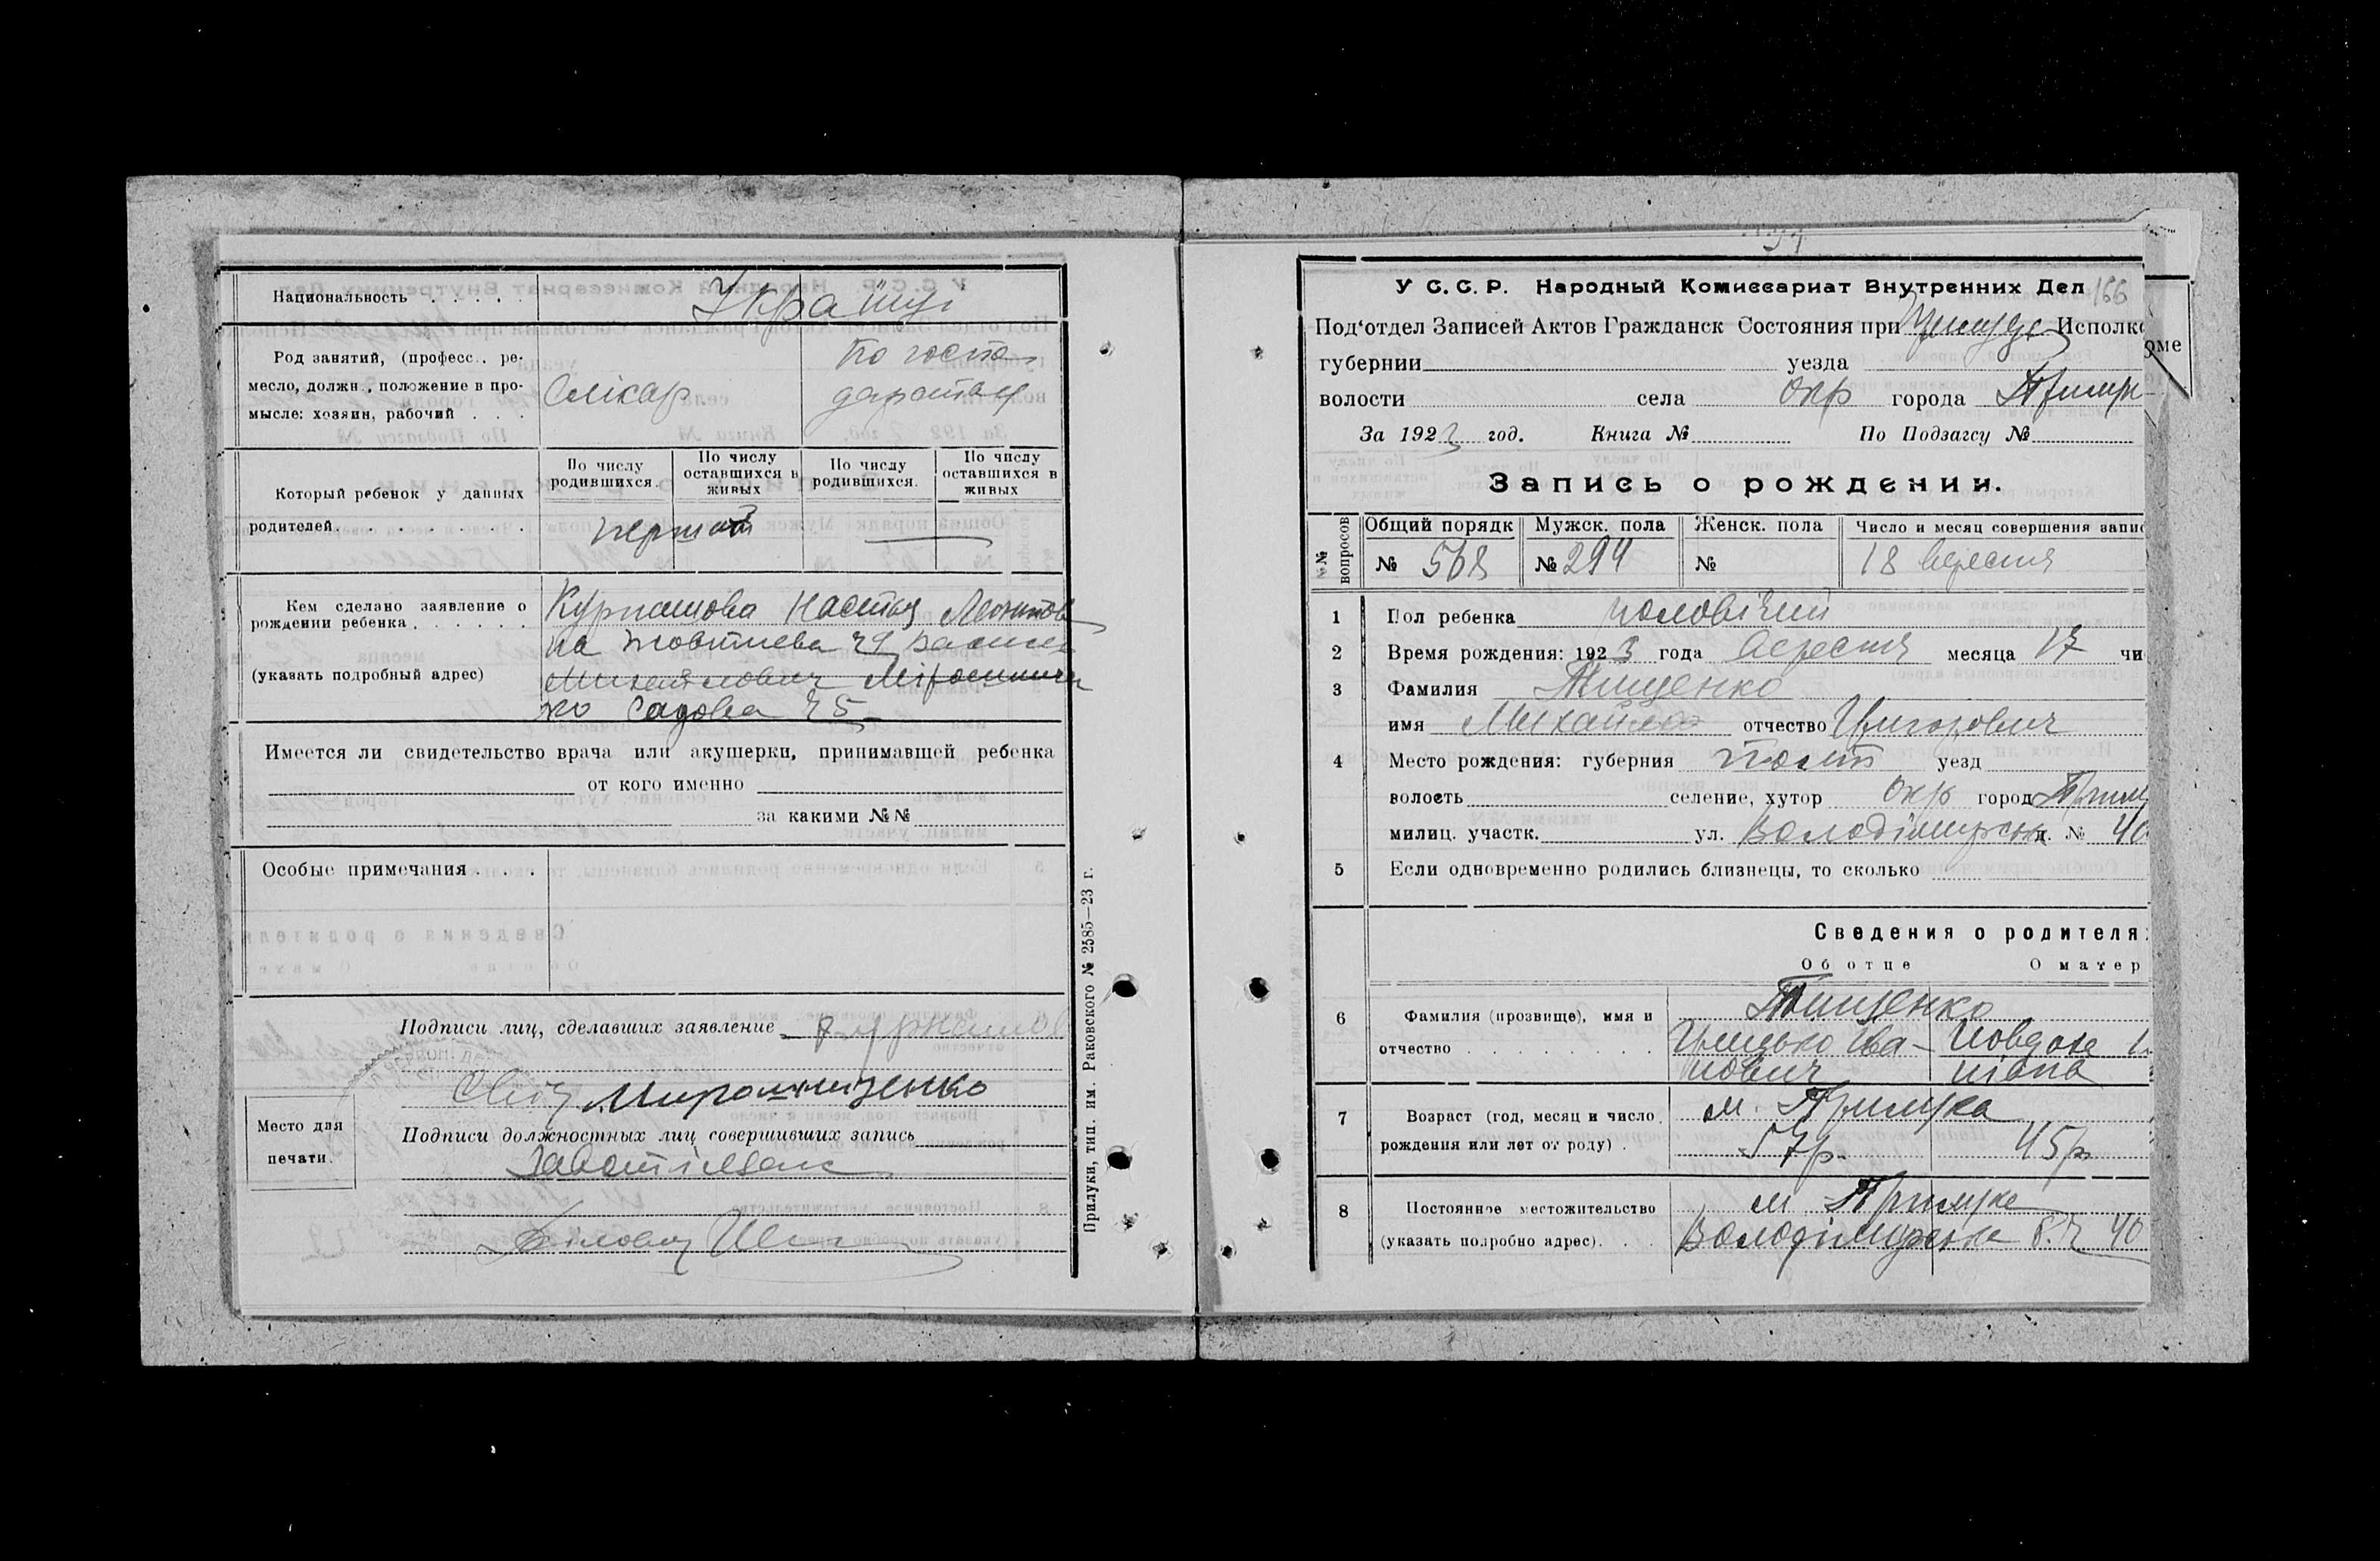 Национальность . . . . . Українці
Род занятий, (професс., ре-
месло, должн., положение в про-
мысле: хозяин, рабочий . . .
По госпо
дарству
Который ребенок у данных
родителей . . . . . . .
По числу родившихся. По числу оставшихся в живых По числу родившихся. По числу оставшихся в живых
перший
Кем сделано заявление о
рождении ребенка . . . . . .
(указать подробный адрес)
Настя
Садова 25
Имеется ли свидетельство врача или акушерки, принимавшей ребенка
от кого именно
за какими №№
Особые примечания . . .
Подписи лиц, сделавших заявление
Мирошниченко
Подписи должностных лиц совершивших запись
Место для
печати.
Прилуки, тип. им. Раковского № 2585—23 г.
166
У С. С. Р. Народный Комиссариат Внутренних Дел
Под'отдел Записей Актов Гражданск Состояния при Исполко
оме
губернии уезда
волости села Окр города Прилук
За 1923 год. Книга № По Подзагсу №
Запись о рождении.
№№ вопросов Общий порядк Мужск. пола Женск. пола Число и месяц совершения запис
№ 568 № 294 № 18 вересня
1 Пол ребенка чоловічий
2 Время рождения: 1923 года вересня месяца 17 чи
3 Фамилия Тищенко
имя Михайло отчество Григорович
4 Место рождения: губерния Полт уезд
волость селение, хутор окр город Прилу
милиц. участк. ул. Володімирська д. № 40
5 Если одновременно родились близнецы, то сколько
Сведения о родителя
Об отце О матер
6 Фамилия (прозвище), имя и
отчество . . . . . . . .
Тищенко
Грицько Іва-
нович
7 Возраст (год, месяц и число
рождения или лет от роду) .
м. Прилука
57р. 45р
8 Постоянное местожительство
(указать подробно адрес). . .
м Прилуке
Володімирська б. ч 40